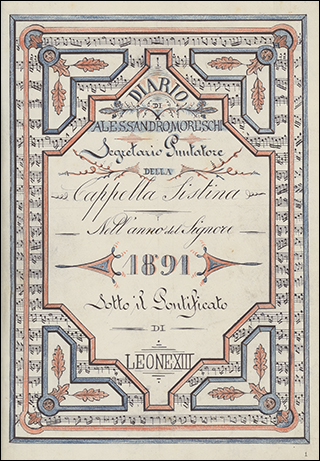 DIARIO
DI
ALESSANDRO MORESCHI
Segretario Puntatore
DELLA
Cappella Sistina
Nell'anno del Signore
1891
Sotto il Pontificato
DI
LEONE XIII
1